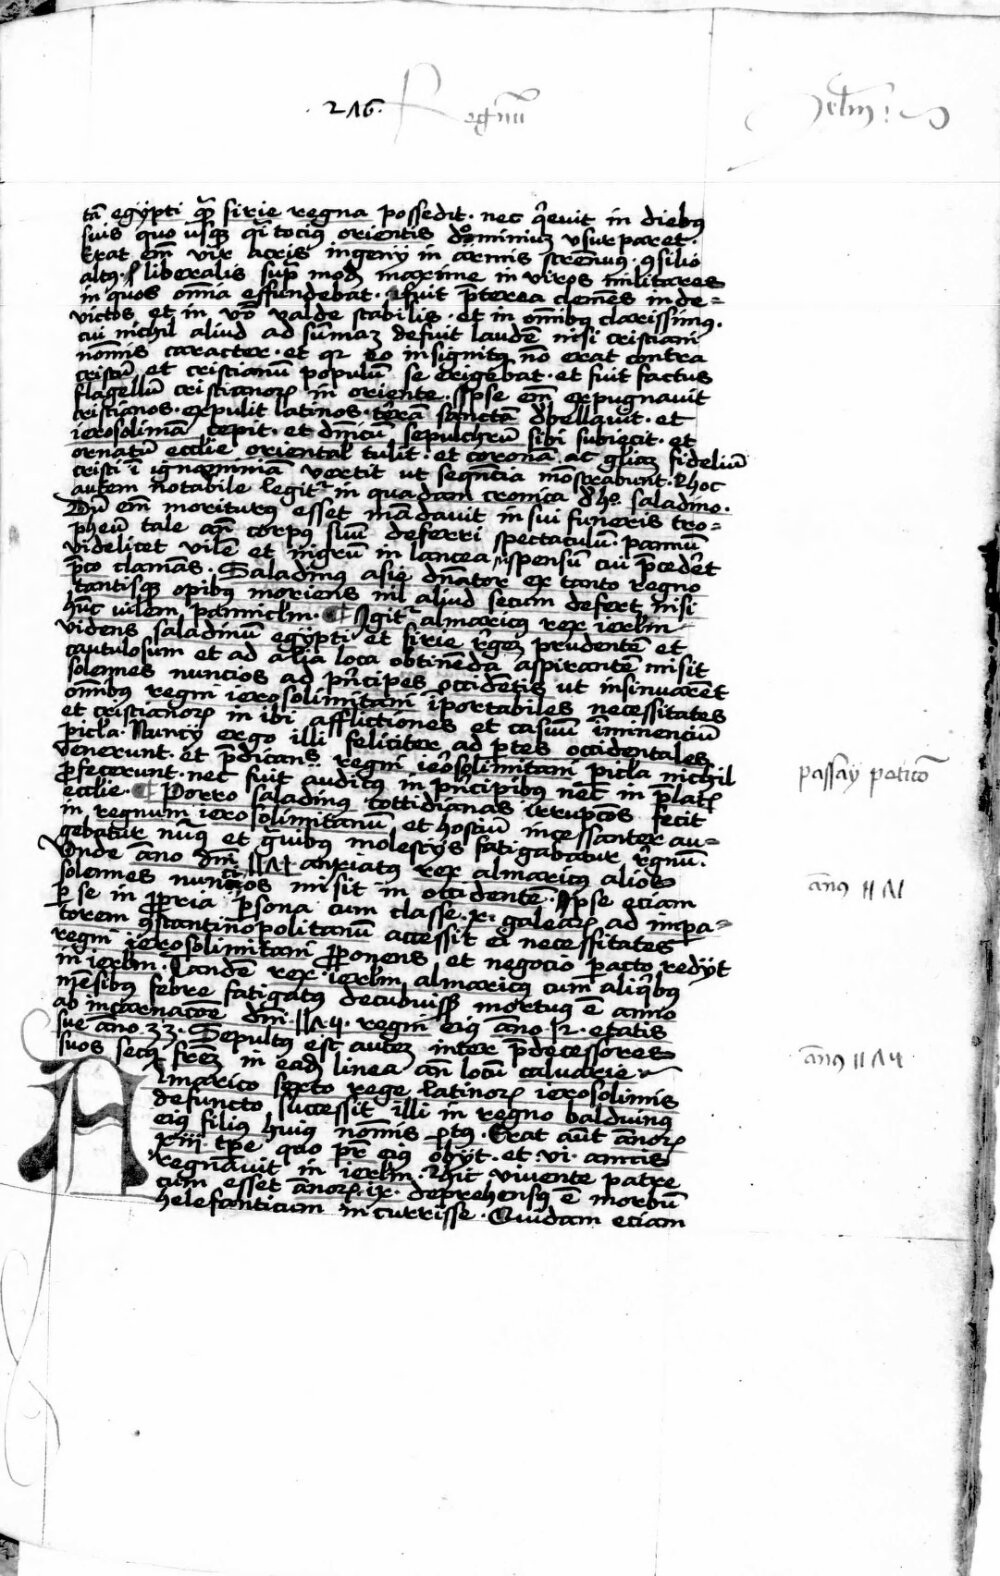 · 216 · Regnũ Jerlm̃
tã egÿpti q̃ʒ sirie regna possedit · nec q̃evit in diebus
suis quo usq̃ʒ q̃i tocius orientis dominium usurparet ·
Erat em̃ vir acris ingenÿ in armis strenuus · ↄsilio
altus · liberalis sup̃ modũ maxime in viros militares
in quos om̃ia effundebat · Fuit p̃terea clemẽs in de=
victos et in võ valde stabilis · et in om̃ibus clarissimus ·
cui nichil aliud ad sũmam defuit laudẽ nisi cristiani
nom̃is caracter · et qr eo insignitus nõ erat contra
cristũ et cristianũ populũ se erigebat · et fuit factus
flagellũ cristianoꝝ in oriente · Ipse em̃ expugnavit
cristianos · expulit latinos · terrã sanctam debellavit · et
ierosolimã cepit · et dñicũ sepulchrũ sibi subiecit · et
ornatũ ecclie oriental tulit · et coronã ac gliam fideliũ
cristi ĩ ignominiã vertit ut seq̃ntia mõstrabunt · Hoc
autem notabile legit᷑ in quadam cronica de hº saladino ·
Dũ em̃ moriturus esset mãdavit in sui funeris tro=
pheũ tale añ corpus suũ deferri spectaculũ · pannũ
videlicet vilẽ et nigrũ in lancea suspensũ cui p̃cederet
p̃co clamãs · Saladinus asie dñator ex tanto regno
tantisq̃ʒ opibus moriens nil aliud secum defert nisi
hũc vilem panniclm · ¶ Igit᷑ almaricus rex ierlm̃
videns saladinũ egÿpti et sirie regem prudentẽ et
cautulosum et ad alia loca obtinẽda aspirantẽ misit
solennes nuncios ad p̃ncipes occidẽtis ut insinuarẽt
om̃ibus regni ierosolimitani ĩportabiles necessitates
et cristianoꝝ in ibi afflictiones et casuũ ĩminenciũ
picla · Nuncÿ ergo illi feliciter ad p̃tes occidentales
venerunt · et p̃dicans regni ierosolimitani picla nichil
ꝓfecerunt · nec fuit auditus in p̃ncipibus nec in p̃latis
ecclie · ¶ Porro saladinus cottidianas irrupcões fecit
in regnum ierosolimitanũ et hostiũ incessanter au=
gebatur nũus et gravibus molestÿs fatigabatur regnũ ·
Unde ãno dñi 1171 anxiatus rex almaricus alios
solennes nuncios misit in occidentẽ · Ipse etiam
ꝑ se in ꝓpria ꝑsona cum classe · x · galearꝝ ad impa=
torem ↄstantinopolitanũ accessit ei necessitates
regni ierosolimitani ꝓponens et negocio ꝑacto redÿt
in ierlm̃ · Tandẽ rex ierlm̃ almaricus cum aliq̃bus
mẽsibus febre fatigatus decubuissʒ mortuus ẽ anno
ab incarnacõe dñi · 1174 · regni eius ãno 12 · etatis
sue ãno 33 · Sepultus est autem inter p̃decessores
suos secus frem in eadem linea añ locũ calvarie
Almarico sexto rege latinoꝝ ierosolimis
defuncto successit illi in regno balduinus
eius filius huius nom̃is q̃rtus · Erat aũt ãnoꝝ
xiii · tp̃e quo pr̃ eius obÿt · et vi · annis
regnavit in ierlm̃ · Hic vivente patre
cum esset ãnoꝝ · ix · deprehensus ẽ morbũ
helefanticum incurrisse · Quidam etiam
ãnus 1171
ãnus 1174